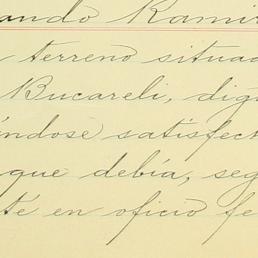 ando Ramír
terreno situad
Bucareli, dig
éndose satisfect
que debía, seg
té en oficio fe